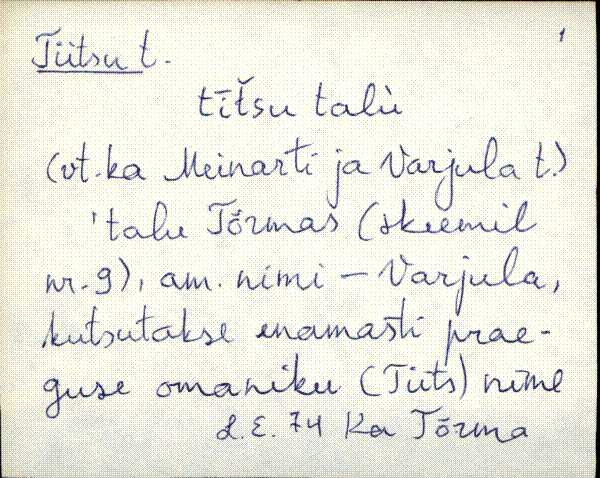 1
Tiitsu t.
tīt̆su talù
(vt. ka Meinarti ja Varjula t.)
'talu Tõrmas (skeemil
nr. 9), am. nimi – Varjula,
kutsutakse enamasti prae-
guse omaniku (Tiits) nime
L.E. 74 Ka Tõrma